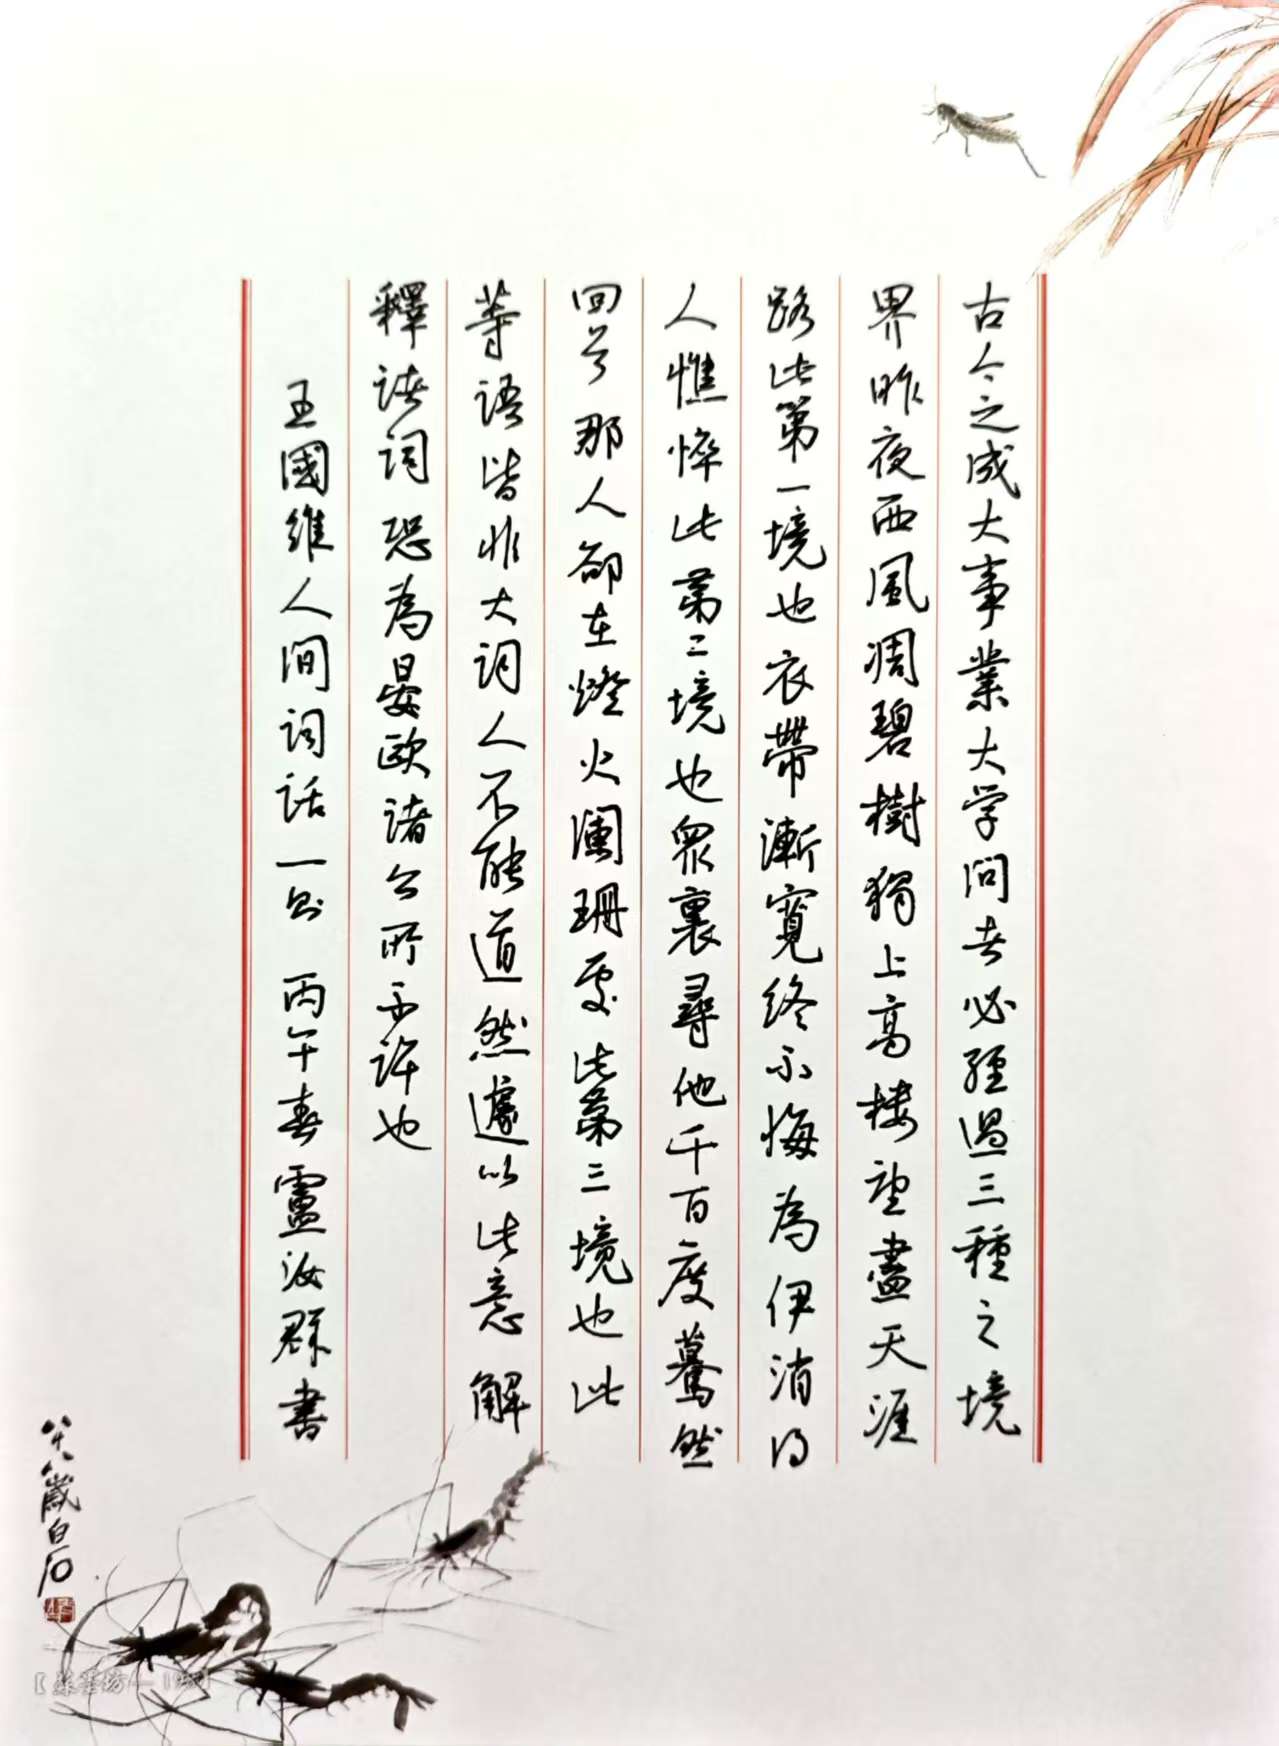 古今之成大事業大学問者必經過三種之境
界昨夜西風凋碧樹獨上高樓望盡天涯
路此第一境也衣帶漸寬終不悔為伊消得
人憔悴此第二境也眾裏尋他千百度驀然
回首那人卻在燈火闌珊處此第三境也此
等語皆非大詞人不能道然遽以此意解
釋諸詞恐為晏歐諸公所不許也
王國維人間詞話一則 丙午春盧汝群書
八十八歲白石